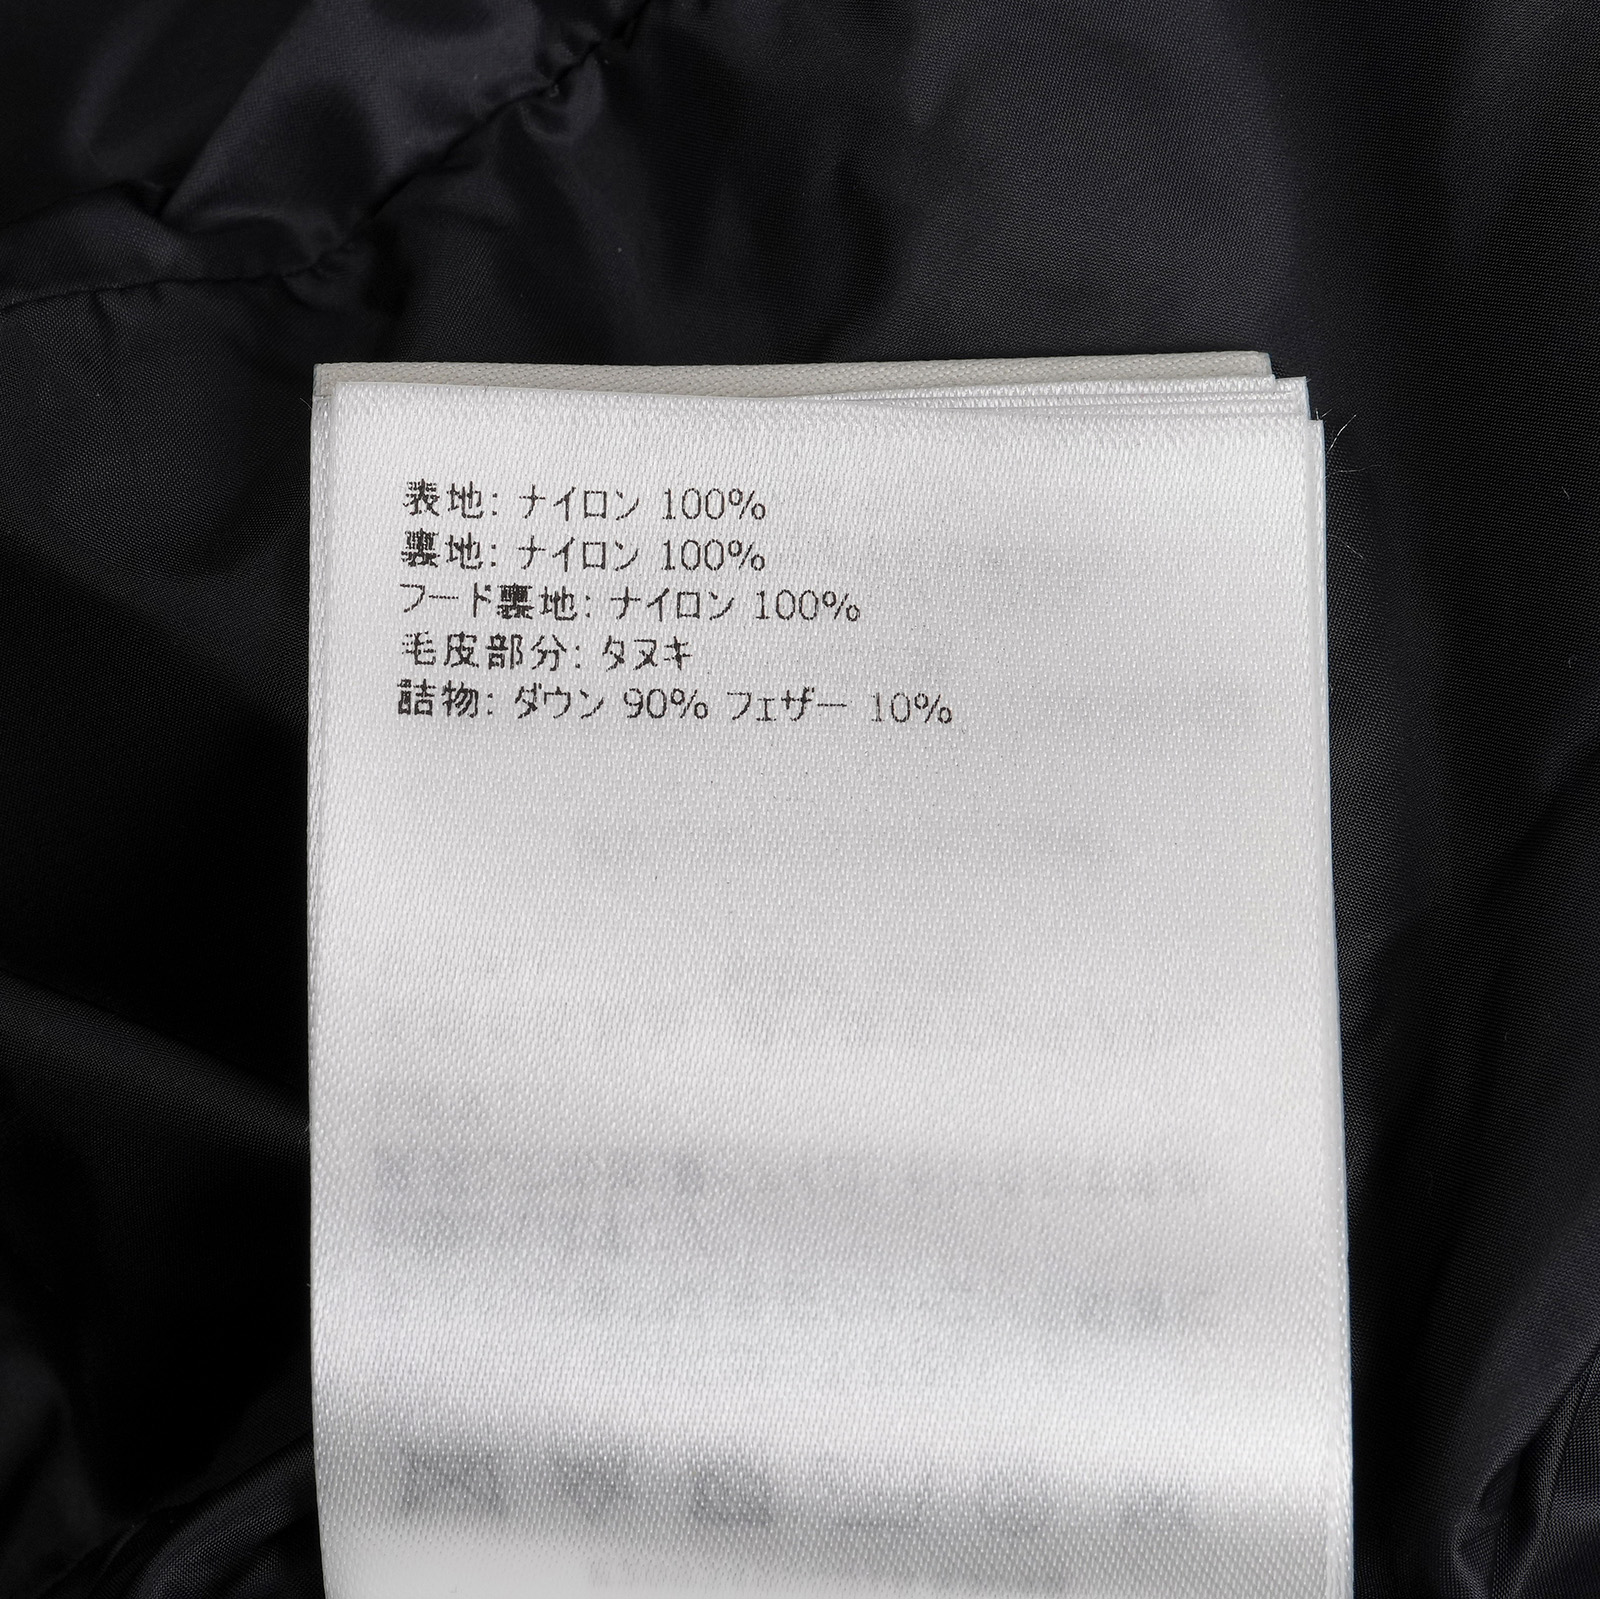 表地: ナイロン 100%
裏地: ナイロン 100%
フード裏地: ナイロン 100%
毛皮部分: タヌキ
詰物: ダウン 90% フェザー 10%